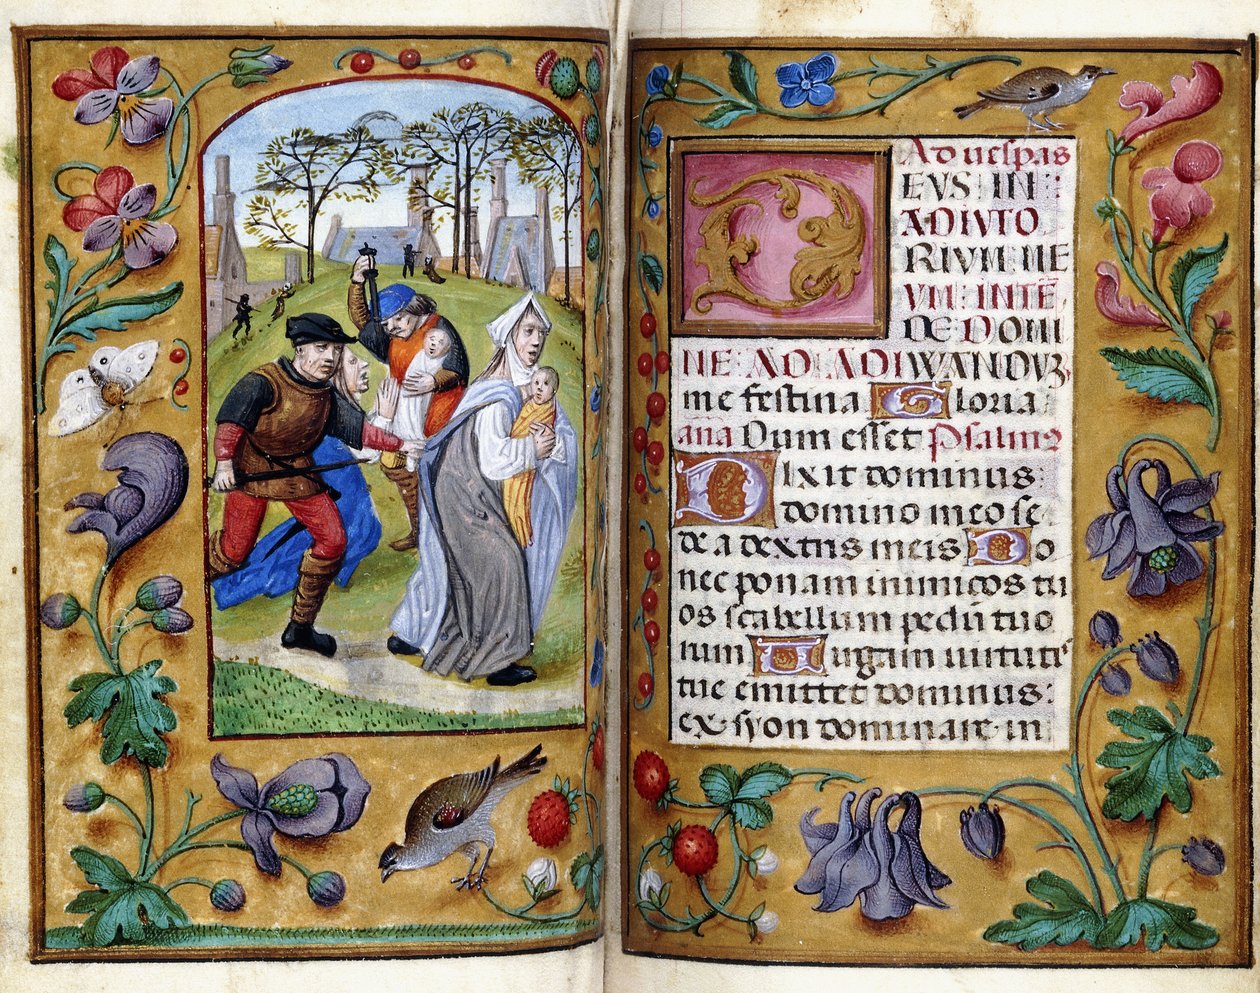 Ad uespas
EVS IN
ADIVTO
RIVM ME
VM INTĒ
DE DOMI
NE AD ADIWANDVȜ
me festina Gloria
ana Dum esset Psalm9
Dixit dominus
domino meo se
de a dextris meis Do
nec ponam inimicos tu
os scabellum pedū tuo
rum Virgam uirtuti
tue emittet dominus
ex syon dominare in